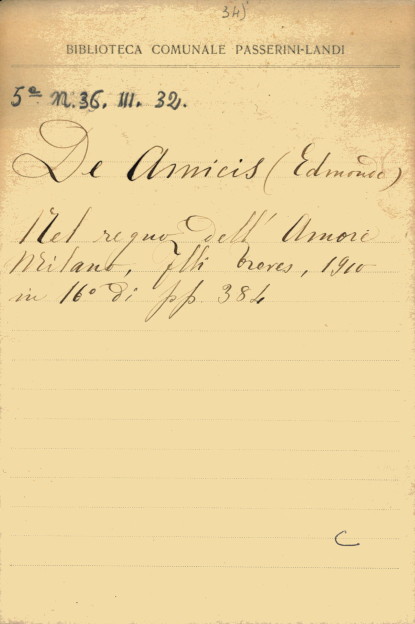 34)
BIBLIOTECA COMUNALE PASSERINI-LANDI
5ª N. 36. III. 32.
De Amicis (Edmondo)
Nel regno dell' Amore
Milano, Flli Treves, 1910
in 16° di pp 384
C